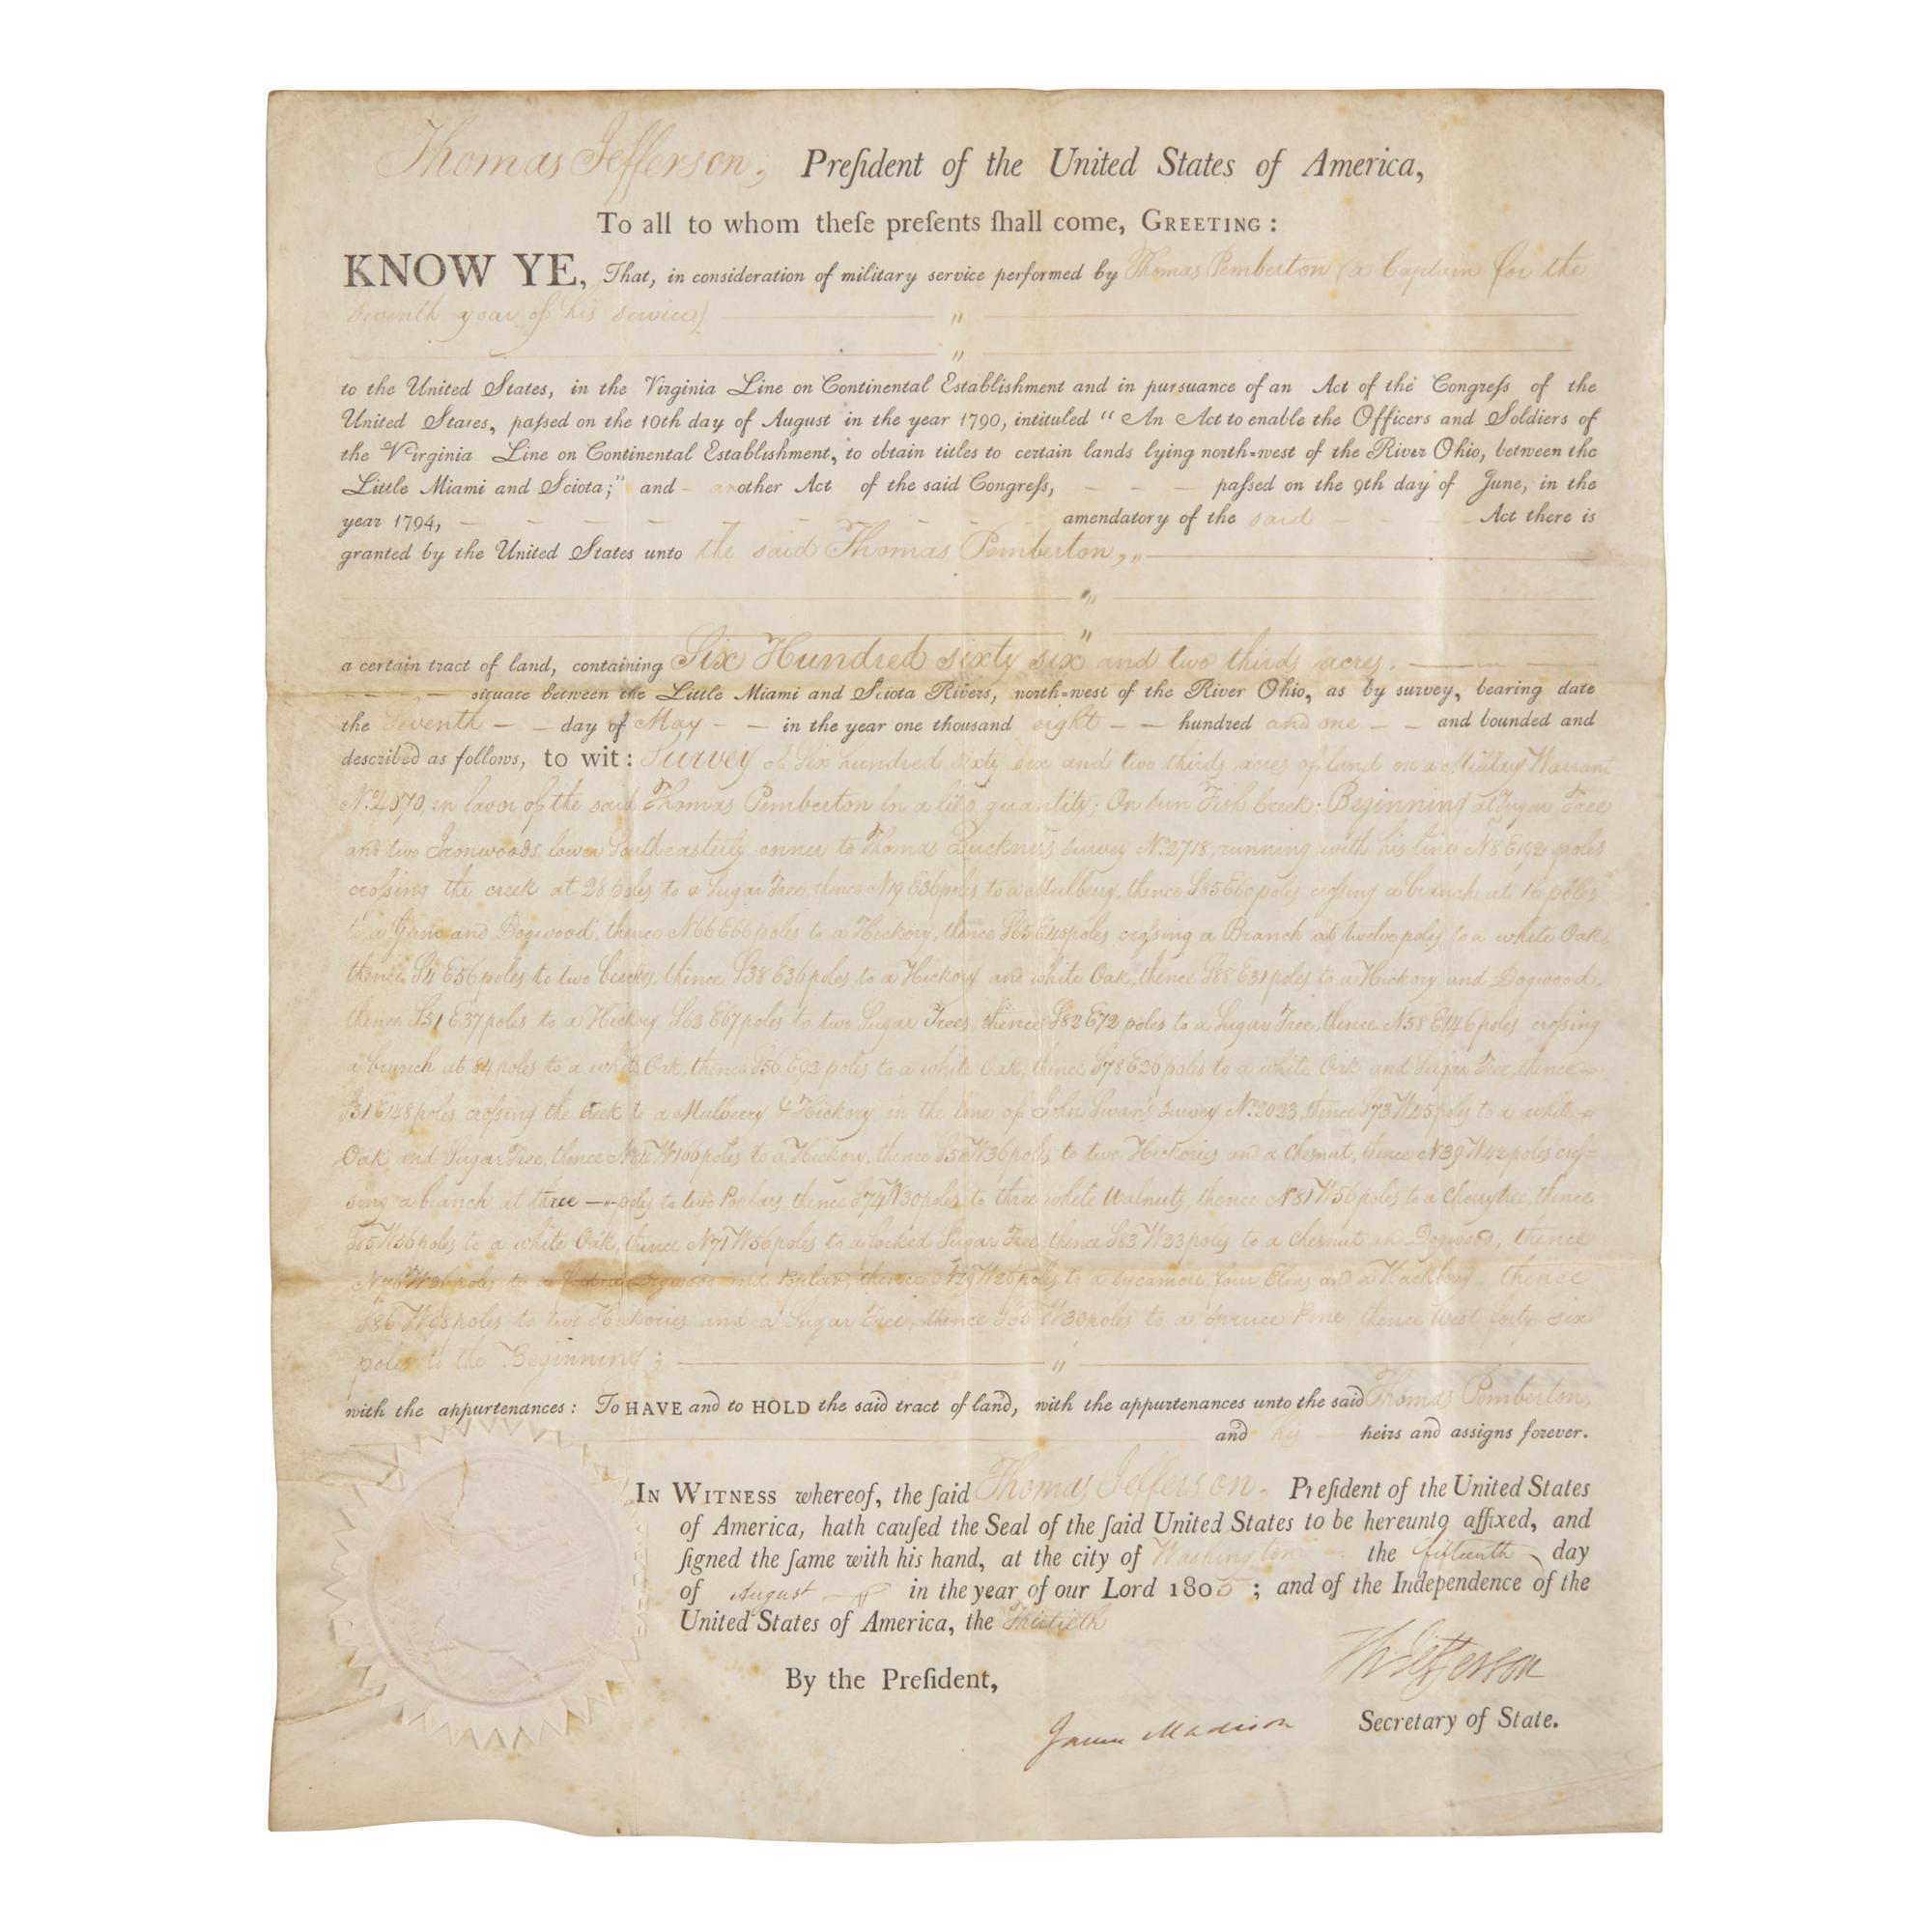 Thomas Jefferson, Preſident of the United States of America,
To all to whom theſe preſents ſhall come, GREETING:
KNOW YE, That, in consideration of military service performed by Thomas Pemberton (a Captain for the
seventh year of his service)
to the United States, in the Virginia Line on Continental Establishment and in pursuance of an Act of the Congreſs of the
United Stares, paſsed on the 10th day of August in the year 1790, intituled "An Act to enable the Officers and Soldiers of
the Virginia Line on Continental Establishment, to obtain titles to certain lands lying north=west of the River Ohio, between the
Little Miami and Sciota;" and - another Act of the said Congreſs, - - - paſsed on the 9th day of June, in the
year 1794, - - - - - - - amendatory of the said - - - Act there is
granted by the United States unto the said Thomas Pemberton,
a certain tract of land, containing Six Hundred sixty six and two thirds acres.
situate between the Little Miami and Sciota Rivers, north=west of the River Ohio, as by survey, bearing date
the Seventh - - day of May - - in the year one thousand eight - - hundred and one - - and bounded and
described as follows, to wit: Survey of Six hundred sixty six and two thirds acres of land on a Military Warrant
in favor of the said Thomas Pemberton Fish Creek. Beginning at Sugar Tree
and two Ironwoods, lower Southeasterly corner to Thomas survey No. 2718, running with his line N8 E192 poles
croſsing the creek at 28 poles to a Sugar Tree, thence N19 E36 poles to a Mulberry, thence S85 E60 poles croſsing a branch at 16 poles
to a Gum and Dogwood, thence N66 E66 poles to a Hickory, thence croſsing a Branch at twelve poles to a white Oak,
thence S4 E56 poles to two beeches, thence S38 E36 poles to a Hickory and white Oak, thence S88 E31 poles to a Hickory and Dogwood,
thence S51 E37 poles to a Hickory S63 E67 poles to two Sugar Trees, thence S82 E72 poles to a Sugar Tree, thence N58 E146 poles croſsing
a branch at 84 poles to a white Oak, thence S56 E92 poles to a white Oak, thence S78 E26 poles to a white Oak and Sugar Tree, thence
S31 E148 poles croſsing the Creek to a Mulberry & Hickory in the line of John Swan's survey No. 2023, thence poles to a white
Oak and Sugar Tree, thence poles to a Hickory, thence poles to two Hickories and a Chesnut, thence N39 W42 poles croſ=
sing a branch at three poles to two Poplars, thence S74 W30 poles to three white Walnuts, thence N81 W56 poles to a Cherrytree, thence
poles to a white Oak, thence poles to a forked Sugar Tree, thence S83 W23 poles to a chesnut an Dogwood, thence
poles to Dogwood and Poplar, thence poles to a Sycamore, four Elms and a Hackberry, thence
poles to two Hickories and a Sugar Tree, thence poles to a Spruce Pine, thence West forty six
poles to the Beginning;
with the appurtenances: To HAVE and to HOLD the said tract of land, with the appurtenances unto the said Thomas Pemberton,
and his heirs and assigns forever.
IN WITNESS whereof, the ſaid Thomas Jefferson, Preſident of the United States
of America, hath cauſed the Seal of the ſaid United States to be hereunto affixed, and
ſigned the ſame with his hand, at the city of Washington - the fifteenth day
of August in the year of our Lord 1805; and of the Independence of the
United States of America, the Thirtieth
Th: Jefferson
By the Preſident,
James Madison Secretary of State.